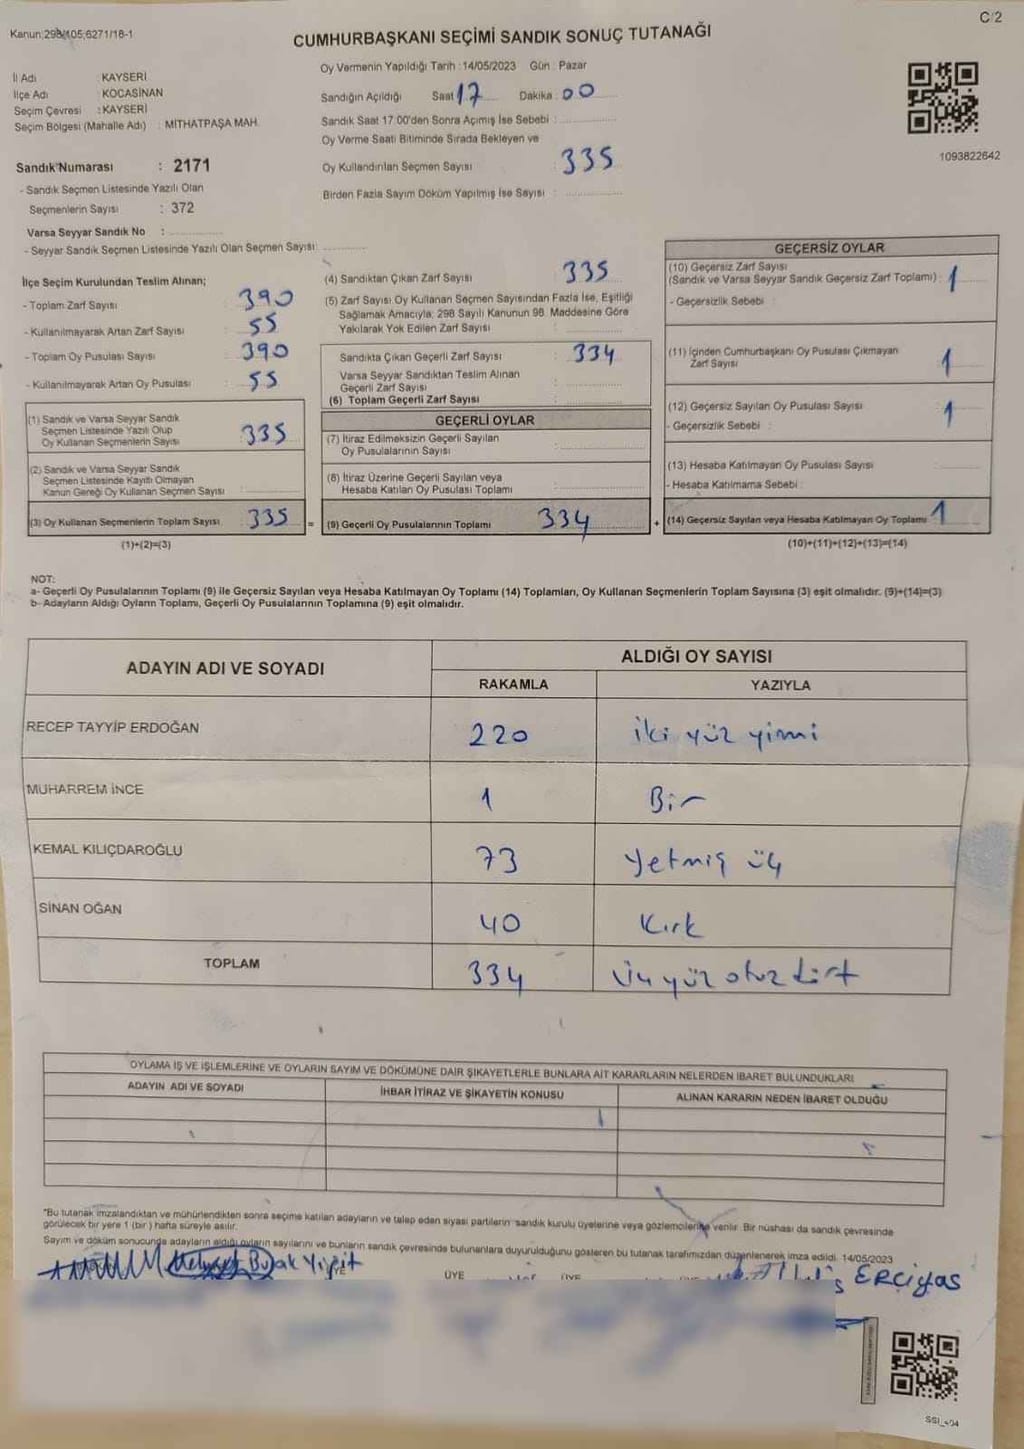 C/2
Kanun:298/105;6271/18-1
CUMHURBAŞKANI SEÇİMİ SANDIK SONUÇ TUTANAĞI
İl Adı : KAYSERİ
İlçe Adı : KOCASİNAN
Seçim Çevresi : KAYSERİ
Seçim Bölgesi (Mahalle Adı) : MİTHATPAŞA MAH.
Sandık Numarası : 2171
- Sandık Seçmen Listesinde Yazılı Olan
Seçmenlerin Sayısı : 372
Varsa Seyyar Sandık No :
- Seyyar Sandık Seçmen Listesinde Yazılı Olan Seçmen Sayısı:
Oy Vermenin Yapıldığı Tarih : 14/05/2023 Gün : Pazar
Sandığın Açıldığı Saat 17 Dakika : 00
Sandık Saat 17:00'den Sonra Açımış İse Sebebi :
Oy Verme Saati Bitiminde Sırada Bekleyen ve
Oy Kullandırılan Seçmen Sayısı : 335
Birden Fazla Sayım Döküm Yapılmış İse Sayısı :
1093822642
İlçe Seçim Kurulundan Teslim Alınan;
- Toplam Zarf Sayısı : 390
- Kullanılmayarak Artan Zarf Sayısı : 55
- Toplam Oy Pusulası Sayısı : 390
- Kullanılmayarak Artan Oy Pusulası : 55
(1) Sandık ve Varsa Seyyar Sandık
Seçmen Listesinde Yazılı Olup
Oy Kullanan Seçmenlerin Sayısı : 335
(2) Sandık ve Varsa Seyyar Sandık
Seçmen Listesinde Kayıtlı Olmayan
Kanun Gereği Oy Kullanan Seçmen Sayısı :
(3) Oy Kullanan Seçmenlerin Toplam Sayısı : 335
(1)+(2)=(3)
(4) Sandıktan Çıkan Zarf Sayısı : 335
(5) Zarf Sayısı Oy Kullanan Seçmen Sayısından Fazla İse, Eşitliği
Sağlamak Amacıyla; 298 Sayılı Kanunun 98. Maddesine Göre
Yakılarak Yok Edilen Zarf Sayısı :
Sandıkta Çıkan Geçerli Zarf Sayısı : 334
Varsa Seyyar Sandıktan Teslim Alınan
Geçerli Zarf Sayısı :
(6) Toplam Geçerli Zarf Sayısı :
GEÇERLİ OYLAR
(7) İtiraz Edilmeksizin Geçerli Sayılan
Oy Pusulalarının Sayısı :
(8) İtiraz Üzerine Geçerli Sayılan veya
Hesaba Katılan Oy Pusulası Toplamı :
= (9) Geçerli Oy Pusulalarının Toplamı : 334
GEÇERSİZ OYLAR
(10) Geçersiz Zarf Sayısı
(Sandık ve Varsa Seyyar Sandık Geçersiz Zarf Toplamı) : 1
- Geçersizlik Sebebi :
(11) İçinden Cumhurbaşkanı Oy Pusulası Çıkmayan
Zarf Sayısı : 1
(12) Geçersiz Sayılan Oy Pusulası Sayısı : 1
- Geçersizlik Sebebi :
(13) Hesaba Katılmayan Oy Pusulası Sayısı :
- Hesaba Katılmama Sebebi :
+ (14) Geçersiz Sayılan veya Hesaba Katılmayan Oy Toplamı : 1
(10)+(11)+(12)+(13)=(14)
NOT:
a- Geçerli Oy Pusulalarının Toplamı (9) ile Geçersiz Sayılan veya Hesaba Katılmayan Oy Toplamı (14) Toplamları, Oy Kullanan Seçmenlerin Toplam Sayısına (3) eşit olmalıdır. (9)+(14)=(3)
b- Adayların Aldığı Oyların Toplamı, Geçerli Oy Pusulalarının Toplamına (9) eşit olmalıdır.
ADAYIN ADI VE SOYADI
ALDIĞI OY SAYISI
RAKAMLA YAZIYLA
RECEP TAYYİP ERDOĞAN 220 iki yüz yirmi
MUHARREM İNCE 1 Bir
KEMAL KILIÇDAROĞLU 73 Yetmiş üç
SİNAN OĞAN 40 Kırk
TOPLAM 334 Üç yüz otuz dört
OYLAMA İŞ VE İŞLEMLERİNE VE OYLARIN SAYIM VE DÖKÜMÜNE DAİR ŞİKAYETLERLE BUNLARA AİT KARARLARIN NELERDEN İBARET BULUNDUKLARI
ADAYIN ADI VE SOYADI İHBAR İTİRAZ VE ŞİKAYETİN KONUSU ALINAN KARARIN NEDEN İBARET OLDUĞU
*Bu tutanak imzalandıktan ve mühürlendikten sonra seçime katılan adayların ve talep eden siyasi partilerin sandık kurulu üyelerine veya gözlemcilerine verilir. Bir nüshası da sandık çevresinde
görülecek bir yere 1 (bir) hafta süreyle asılır.
Sayım ve döküm sonucunda adayların aldığı oyların sayılarını ve bunların sandık çevresinde bulunanlara duyurulduğunu gösteren bu tutanak tarafımızdan düzenlenerek imza edildi. 14/05/2023
Burak Yiğit
ÜYE ÜYE
ERCİYAS